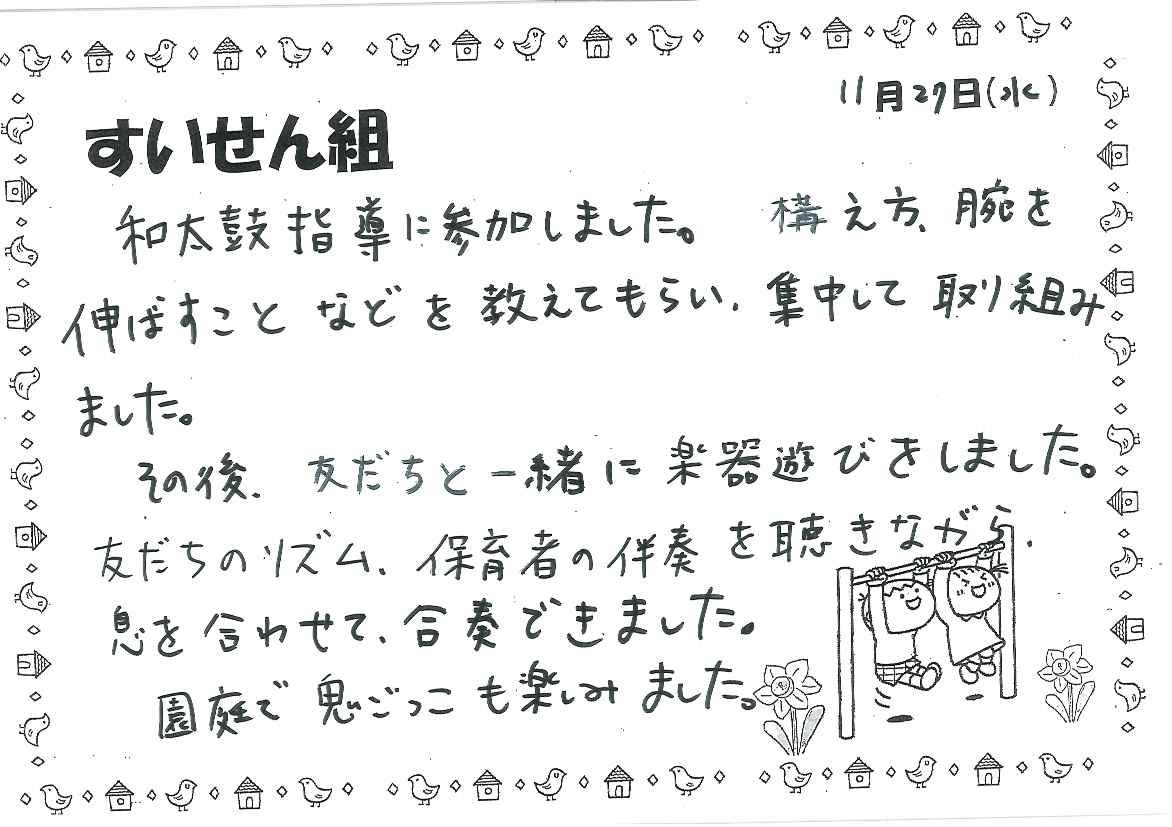 11月27日(水)
すいせん組
和太鼓指導に参加しました。 構え方、腕を
伸ばすこと などを 教えてもらい、集中して 取り組み
ました。
その後、 友だちと 一緒に 楽器遊びをしました。
友だちのリズム、保育者の伴奏 を聴きながら、
息を合わせて、合奏できました。
園庭で 鬼ごっこ も楽しみ ました。